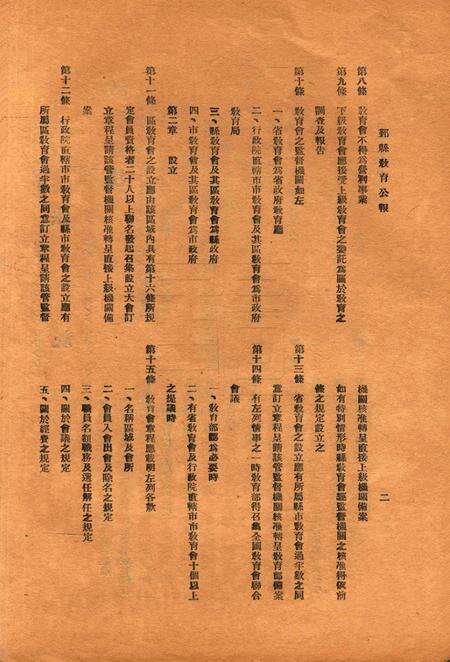 鄞縣教育公報
第八條　教育會不得爲營利事業
第九條　下級教育會應接受上級教育會之委託爲關於教育之
調查及報告
第十條　教育會之監督機關如左
一、省教育會爲省政府教育廳
二、行政院直轄市市教育會及其區教育會爲市政府
教育局
三、縣教育會及其區教育會爲縣政府
四、市教育會及其區教育會爲市政府
第二章　設立
第十一條　區教育會之設立應由該區域內具有第十六條所規
定會員資格者二十人以上聯名發起召集設立大會訂
立章程呈請該管監督機關核准轉呈直接上級機關備
案
第十二條　行政院直轄市市教育會及縣市教育會之設立應有
所屬區教育會過半數之同意訂立章程呈請該管監督
機關核准轉呈直接上級機關備案
如有特別情形時縣教育會經監督機關之核准得依前
條之規定設立之
第十三條　省教育會之設立應有所屬縣市教育會過半數之同
意訂立章程呈請該管監督機關核准轉呈教育部備案
第十四條　有左列情事之一時教育部得召集全國教育會聯合
會議
一、教育部認爲必要時
二、有省教育會及行政院直轄市市教育會十個以上
之提議時
第十五條　教育會章程應載明左列各款
一、名稱區域及會所
二、會員入會出會及除名之規定
三、職員名額職務及選任解任之規定
四、關於會議之規定
五、關於經費之規定
二